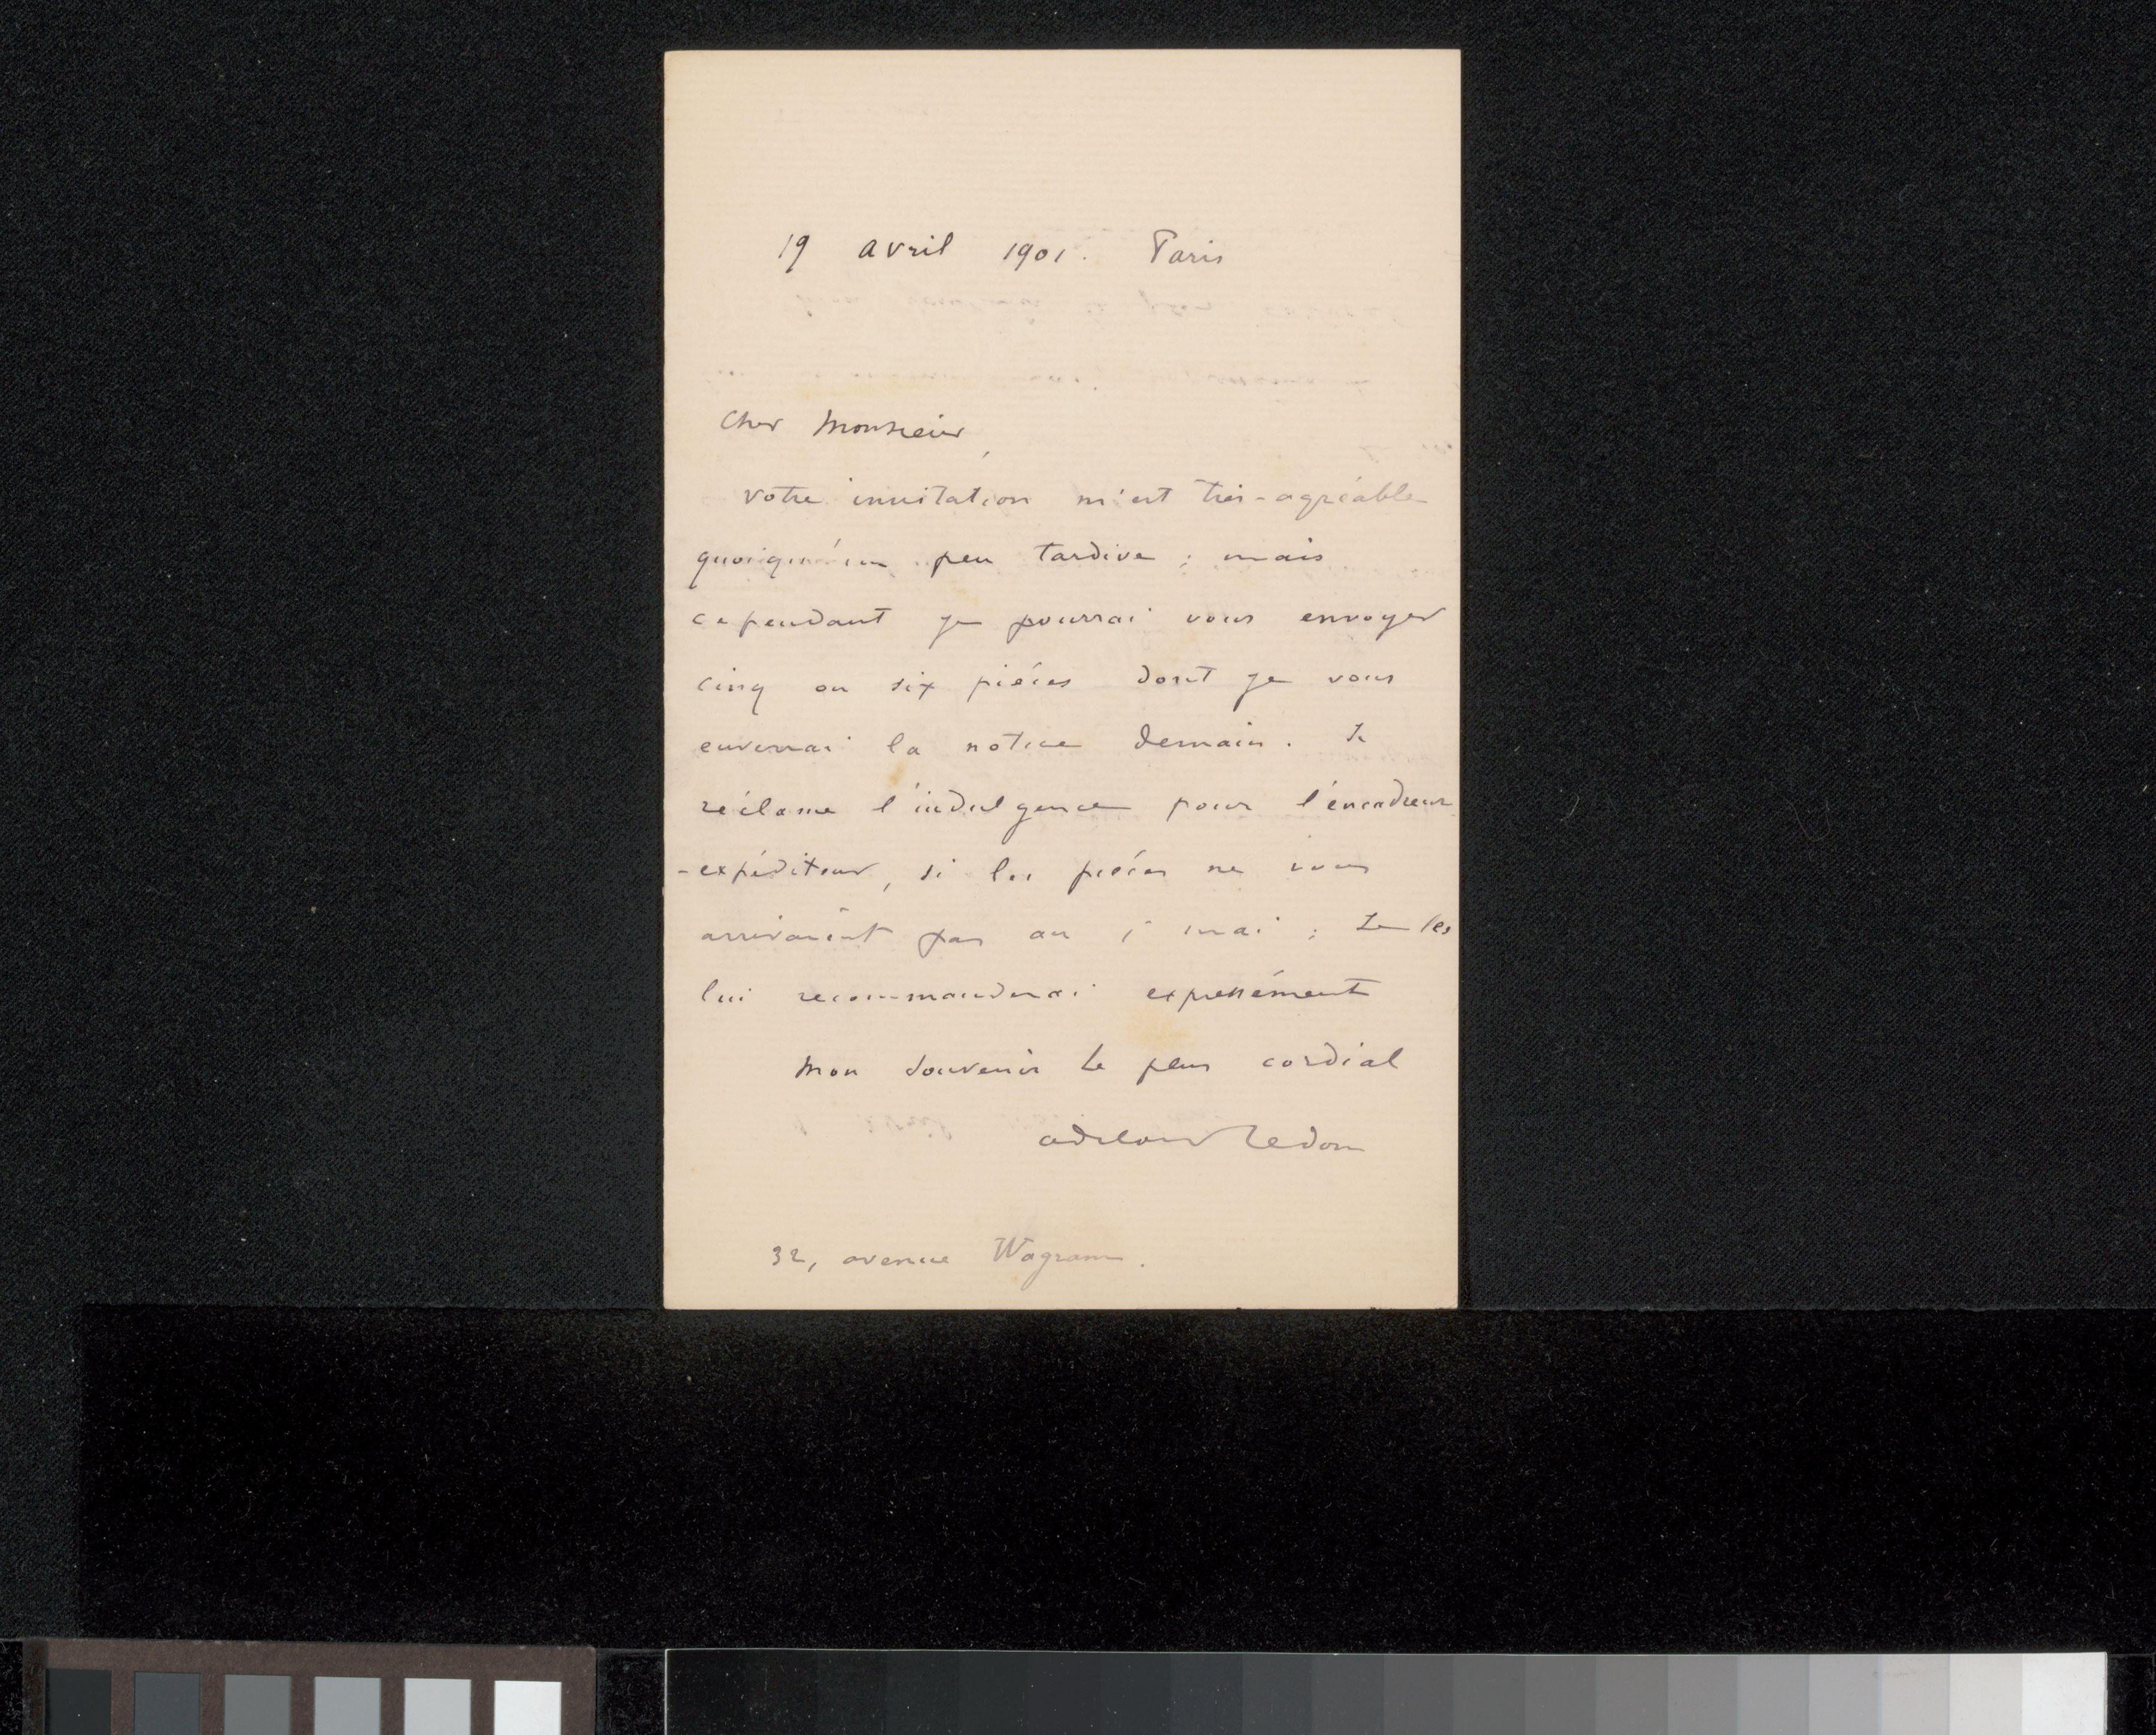 19 avril 1901. Paris
Cher Monsieur,
votre invitation m'est très-agréable
quoiqu'un peu tardive ; mais
cependant je pourrai vous envoyer
cinq ou six pièces dont je vous
enverrai la notice demain. Je
réclame l'indulgence pour l'encadreur
-expéditeur, si les pièces ne vous
arrivaient pas au 1 mai ; Je les
lui recommanderai expressément
Mon souvenir le plus cordial
odilon Redon
32, avenue Wagram.